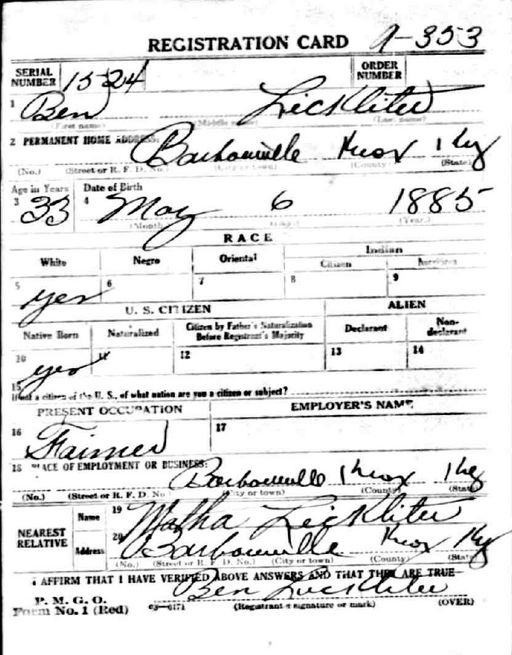 REGISTRATION CARD A-353
SERIAL NUMBER 1524 ORDER NUMBER
1 Ben Lickliter
(First name) (Middle name) (Last name)
2 PERMANENT HOME ADDRESS: Barbourville Knox Ky
(No.) (Street or R. F. D. No.) (City or town) (County) (State)
Age in Years Date of Birth
3 33 4 May 6 1885
(Month) (Day) (Year)
RACE
White Negro Oriental Indian
Citizen Noncitizen
5 yes 6 7 8 9
U. S. CITIZEN ALIEN
Native Born Naturalized Citizen by Father's Naturalization Before Registrant's Majority Declarant Non-declarant
10 yes 11 12 13 14
15 If not a citizen of the U. S., of what nation are you a citizen or subject?
PRESENT OCCUPATION EMPLOYER'S NAME
16 Farmer 17
18 PLACE OF EMPLOYMENT OR BUSINESS: Barbourville Knox Ky
(No.) (Street or R. F. D. No.) (City or town) (County) (State)
NEAREST RELATIVE Name 19 Martha Lickliter
Address 20 Barbourville Knox Ky
(No.) (Street or R. F. D. No.) (City or town) (County) (State)
I AFFIRM THAT I HAVE VERIFIED ABOVE ANSWERS AND THAT THEY ARE TRUE
P. M. G. O.
Form No. 1 (Red) 03—6171 Ben Lickliter
(Registrant's signature or mark) (OVER)